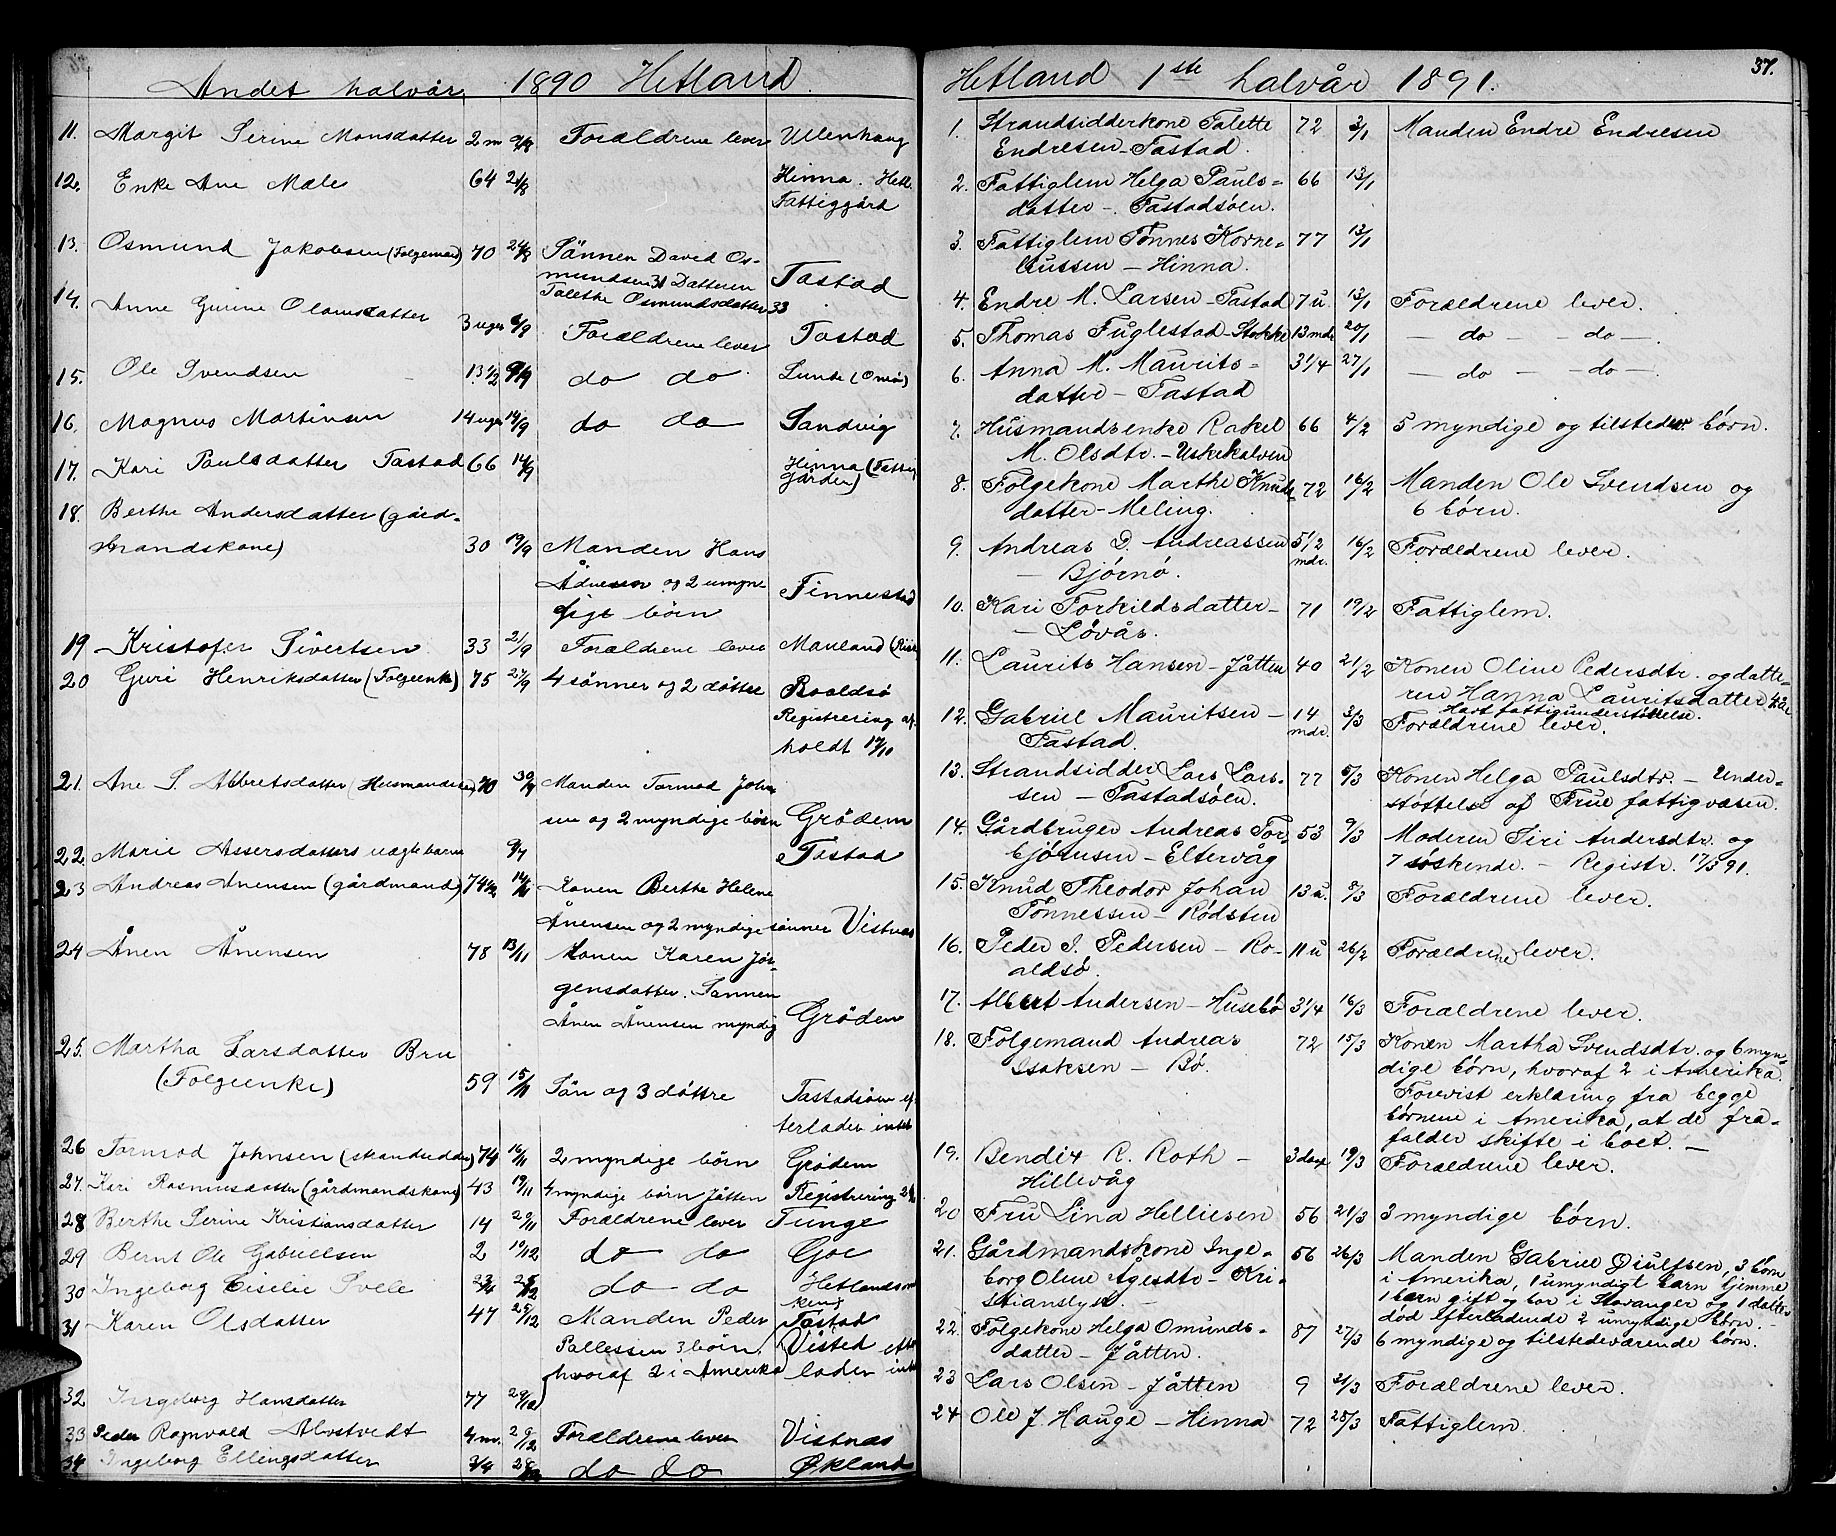 Andet halvår 1890 Hetland.
11. Margit Serine Monsdatter 2 m Forældrene lever Ullenhaug
12. Enke Ane Mæle 64 21/8 Hinna. Hetl.
Fattiggård
13. Osmund Jakobsen (Folgemand) 70 24/8 Sønnen David Os-
mundsen 31 Datteren Tastad
Talette Osmundsdatter 33
14. Anne Gurine Olausdatter 3 uger 6/9 Forældrene lever Tastad
15. Ole Svendsen 13 1/2 9/9 do do Lunde
16. Magnus Martinsen 14 uger 14/9 do do Sandvig
17. Kari Paulsdatter Tastad 66 14/9 Hinna (Fattig
gården)
18. Berthe Andersdatter (gård-
mandskone) 30 19/9 Manden Hans
Ådnesen og 2 umyn- Finnestad
dige børn
19 Kristofer Sivertsen 33 21/9 Forældrene lever Mauland
20 Guri Henriksdatter (Folgeenke) 75 27/9 4 sønner og 2 døttre Roaldsø
Registrering af-
holdt 17/10
21. Ane S. Albretsdatter 70 30/9 Manden Tormod John-
sen og 2 myndige børn Grødem
22. Marie Assersdatters uægte barn 9/7 Tastad
23 Andreas Ånensen (gårdmand) 74 1/2 14/11 Konen Berthe Helene
Ånensen og 2 myndige sønner Vistnæs
24 Ånen Ånensen 78 13/11 Konen Karen Jør-
gensdatter. Sønnen
Ånen Ånensen myndig Grødem
25. Martha Larsdatter Bru
(Folgeenke) 59 15/11 Søn og 3 døttre Tastadsøen ef-
terlader intet
26 Tormod Johnsen (strandsidder) 74 16/11 2 myndige børn Grødem
27. Kari Rasmusdatter (gårdmandskone) 43 19/11 4 myndige børn Jåtten Registrering
28 Berthe Serine Kristiansdatter 14 29/11 Forældrene lever Tunge
29 Bernt Ole Gabrielsen 2 10/12 do do Goe
30 Ingeborg Eiselie Svele 2 3/4 25/12 do do
31 Karen Olsdatter 47 25/12 Manden Peder Tastad
Pallessen 3 børn, Visted efter
hvoraf 2 i Amerika lader intet
32 Ingeborg Hansdatter 77 29/12
33 Peder Ragnvald Alvstvedt 4 m. 29/12 Forældrene lever Vistnæs
34 Ingeborg Ellingsdatter 3/4 28/12 do do Økland
37.
Hetland 1ste halvår 1891.
1. Strandsidderkone Talette 72 3/1 Manden Endre Endresen
Endresen - Tastad.
2. Fattiglem Helga Pauls- 66 13/1
datter - Tastadsøen.
3. Fattiglem Tønnes Korne- 77 13/1
liussen - Hinna.
4. Endre M. Larsen - Tastad 7 u. 13/1 Forældrene lever.
5. Thomas Fuglestad - Stokke 13 mdr 20/1 - do - - do -.
6. Anna M. Maurits- 3 1/4 27/1 - do - - do -.
datter - Tastad
7. Husmandsenke Rakel 66 4/2 5 myndige og tilstedev. børn.
M. Olsdtr. - Uskekalven
8. Folgekone Marthe Knuds- 72 16/2 Manden Ole Svendsen og
datter - Meling. 6 børn.
9. Andreas D. Andreassen 5 1/2 mdr. 16/2 Forældrene lever.
- Bjørnø.
10. Kari Torkildsdatter - 71 19/2 Fattiglem.
- Løvås.
11. Laurits Hansen - Jåtten 40 21/2 Konen Oline Pedersdtr. og datte-
ren Hanna Lauritsdatter 4 år
Havt fattigunderstøttelse.
12. Gabriel Mauritsen - 14 mdr. 3/3 Forældrene lever.
Tastad.
13. Strandsidder Lars Lars- 77 5/3 Konen Helga Paulsdtr. - Under-
sen - Tastadsøen. støttelse af Frue fattigvæsen.
14. Gårdbruger Andreas Tor- 53 9/3 Moderen Siri Andersdtr. og
bjørnsen - Eltervåg 7 søskende. - Registr. 17/3 91.
15. Knud Theodor Johan 13 u. 8/3 Forældrene lever.
Tønnessen - Rødsten
16. Peder S. Pedersen - Ro- 11 u 26/2 Forældrene lever.
aldsø.
17. Albert Andersen - Husebø 3 1/4 16/3 Forældrene lever.
18. Folgemand Andreas 72 15/3 Konen Martha Svendsdtr. og 6 myn-
Isaksen - Bø. dige børn, hvoraf 2 i Amerika.
Forevist erklæring fra begge
børnene i Amerika, at de fra-
falder skifte i boet. -
19. Bendix R. Roth - 3 dage 19/3 Forældrene lever.
Hillevåg
20 Fru Lina Helliesen 56 21/3 3 myndige børn.
21. Gårdmandskone Inge- 56 26/3 Manden Gabriel Giulfsen, 3 børn
borg Oline Ågesdtr - Kri- i Amerika, 1 umyndigt barn hjemme
stianslyst. - 1 barn gift og bor i Stavanger og 1 datter
død efterladende 2 umyndige børn. -
22. Folgekone Helga Omunds- 87 27/3 6 myndige og tilstedeværende børn.
datter - Jåtten.
23 Lars Olsen - Jåtten 9 31/3 Forældrene lever.
24 Ole J. Hauge - Hinna 72 28/3 Fattiglem.